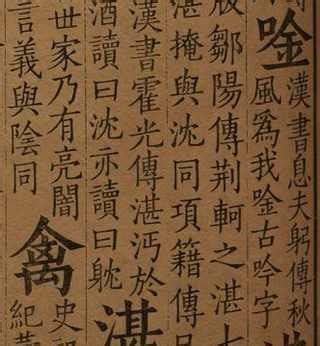 唫
漢書息夫躬傳秋
風爲我唫古吟字
鄒陽傳荆軻之湛七
湛掩與沈同項籍傳
漢書霍光傳湛沔於
酒讀曰沈亦讀曰躭
湛
世家乃有亮闇
言義與陰同
禽
史
紀